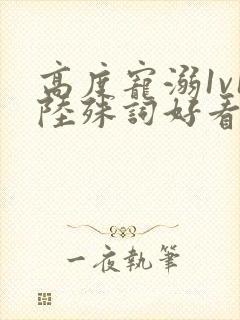 高度寵溺1v1
陸殊詞好看
一夜執筆